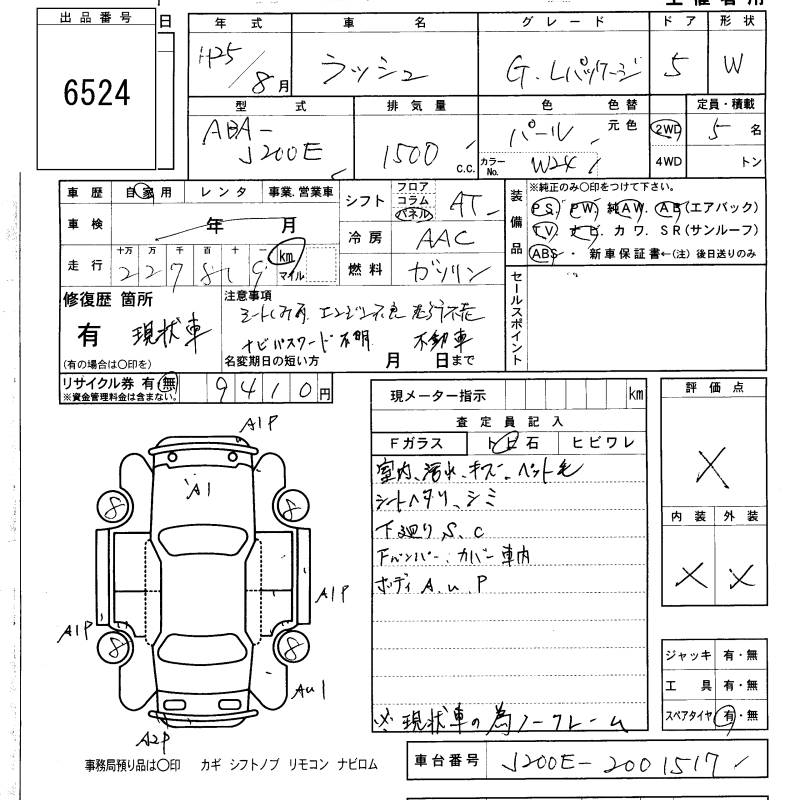 出品番号
6524
日
年式 車名 グレード ドア 形状
H25/8月 ラッシュ G.Lパッケージ 5 W
型式 排気量 色 色替 定員・積載
ABA-J200E 1500 c.c. パール 元色 2WD 5名
カラーNo. W24 4WD トン
車歴 自家用 レンタ 事業.営業車
シフト フロア コラム パネル AT
車検 年 月
冷房 AAC
走行 十万 万 千 百 十 一 km マイル
227819
燃料 ガソリン
装備品 ※純正のみ〇印をつけて下さい。
PS. PW. 純AW. AB(エアバック)
TV. ナビ. カワ. SR(サンルーフ)
ABS・新車保証書←(注) 後日送りのみ
セールスポイント
修復歴 箇所
有 現状車
(有の場合は〇印を)
注意事項
エンジン不良
ナビパスワード不明 不動車
名変期日の短い方 月 日まで
リサイクル券 有 無 9410円
※資金管理料金は含まない。
現メーター指示 km
査定員記入
Fガラス トビ石 ヒビワレ
室内、汚れ、キズ、ペット毛
シートヘタリ、シミ
下廻りS、C
Fバンパー、カバー車内
ボディA.u.P
※現状車の為ノークレーム
評価点
X
内装 外装
X X
ジャッキ 有・無
工具 有・無
スペアタイヤ 有・無
A1P
A1
8 8
A1P
A1P
8 8
Au1
A2P
事務局預り品は〇印 カギ シフトノブ リモコン ナビロム
車台番号 J200E-2001517